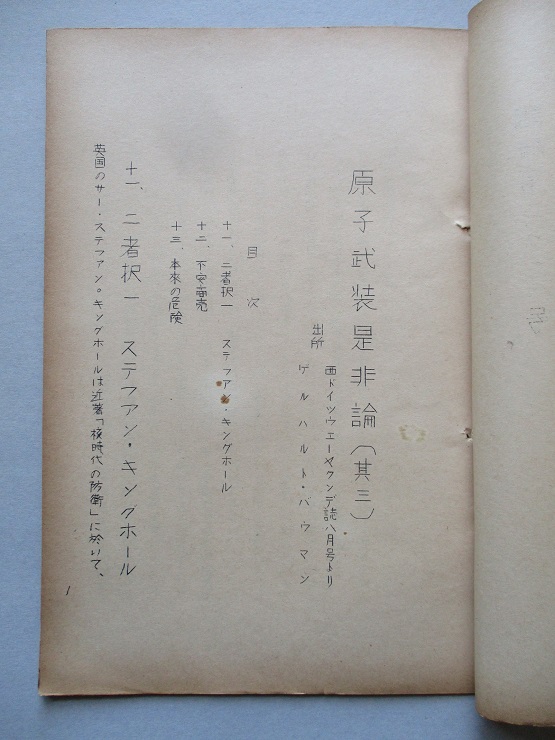 原子武装是非論(其三)
出所 西ドイツウエーヤクンデ誌八月号より
ゲルハルト・バウマン
目次
十一、二者択一 ステファン・キングホール
十二、不安商売
十三、本来の危険
十一、二者択一 ステファン・キングホール
英国のサー・ステファン。キングホールは近著「核時代の防衛」に於いて、
1